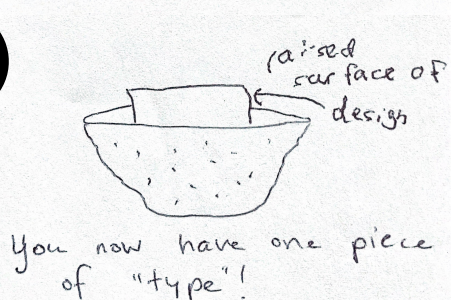 raised
surface of
design
You now have one piece
of "type"!